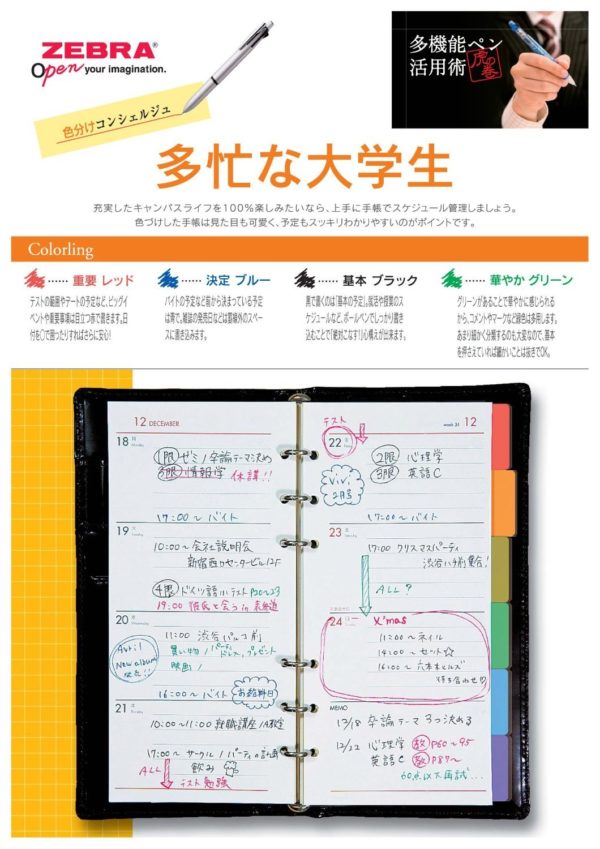 ZEBRA®
Open your imagination.
色分けコンシェルジュ
多機能ペン
活用術
虎の巻
多忙な大学生
充実したキャンパスライフを100%楽しみたいなら、上手に手帳でスケジュール管理しましょう。
色づけした手帳は見た目も可愛く、予定もスッキリわかりやすいのがポイントです。
Colorling
…… 重要 レッド
テストの範囲やデートの予定など、ビッグイ
ベントや重要事項は目立つ赤で書きます。日
付を○で囲ったりすればさらに安心!
…… 決定 ブルー
バイトの予定など前から決まっている予定
は青で。雑誌の発売日などは罫線外のスペー
スに書き込みます。
…… 基本 ブラック
黒で書くのは「基本の予定」。復習や授業のス
ケジュールなど、ボールペンでしっかり書き
込むことで「絶対こなす!」心構えが出来ます。
…… 華やか グリーン
グリーンがあることで華やかに感じられる
から、コメントやマークなど緑色は多用します。
あまり細かく分類するのも大変なので、基本
を押さえていれば細かいことは抜きでOK。
12 DECEMBER
18 月
Monday
1限 ゼミ / 卒論テーマ決め
3限 情報学 休講!!
17:00〜バイト
19 火
Tuesday
10:00〜会社説明会
新宿西口センタービル12F
4限 ドイツ語小テスト P20〜23
19:00 彼氏と会う in 表参道
20
Wednesday
11:00 渋谷パルコ前
買い物 / パーティドレス、プレゼント
映画 /
New album
発売!!
16:00〜バイト
お給料日
21
10:00〜11:00 就職講座 / A教室
17:00〜 サークル / パーティの計画
飲み
ALL
テスト勉強
week 51
12
テスト
22 金
ViVi
2月号
2限 心理学
3限 英語C
17:00〜バイト
23 土
17:00 クリスマスパーティ
渋谷ハチ前集合!
ALL?
24 日
X'mas
11:00〜ネイル
14:00〜セット☆
16:00〜六本木ヒルズ
待ち合わせ
MEMO
12/18 卒論テーマ 3つ決める
12/22 心理学 教 P60〜95
英語C 教 P87〜
60点以下再試...